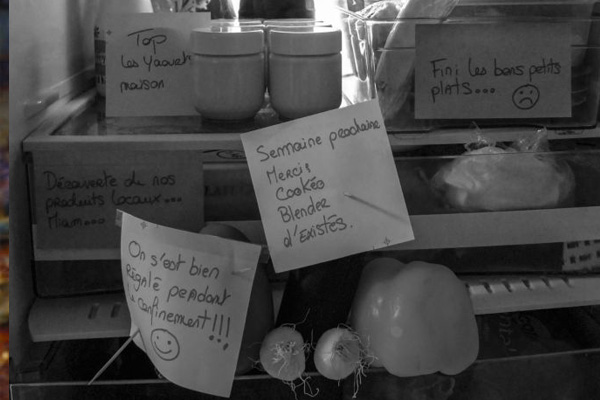 Top
Les Yaourts
maison
Fini les bons petits
plats...
Semaine prochaine
Mercis
Cookéo
Blender
d'Existés.
Découverte de nos
produits locaux...
Miam...
On s'est bien
Régalé pendant
le confinement!!!